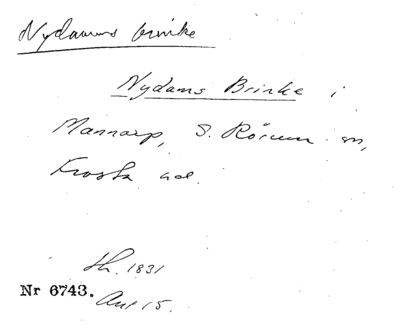 Nydams brinke
Nydams Brinke i
Mannarp, S. Rörum sn,
Frosta hd.
Sk. 1831
Nr 6743. Akt 15.